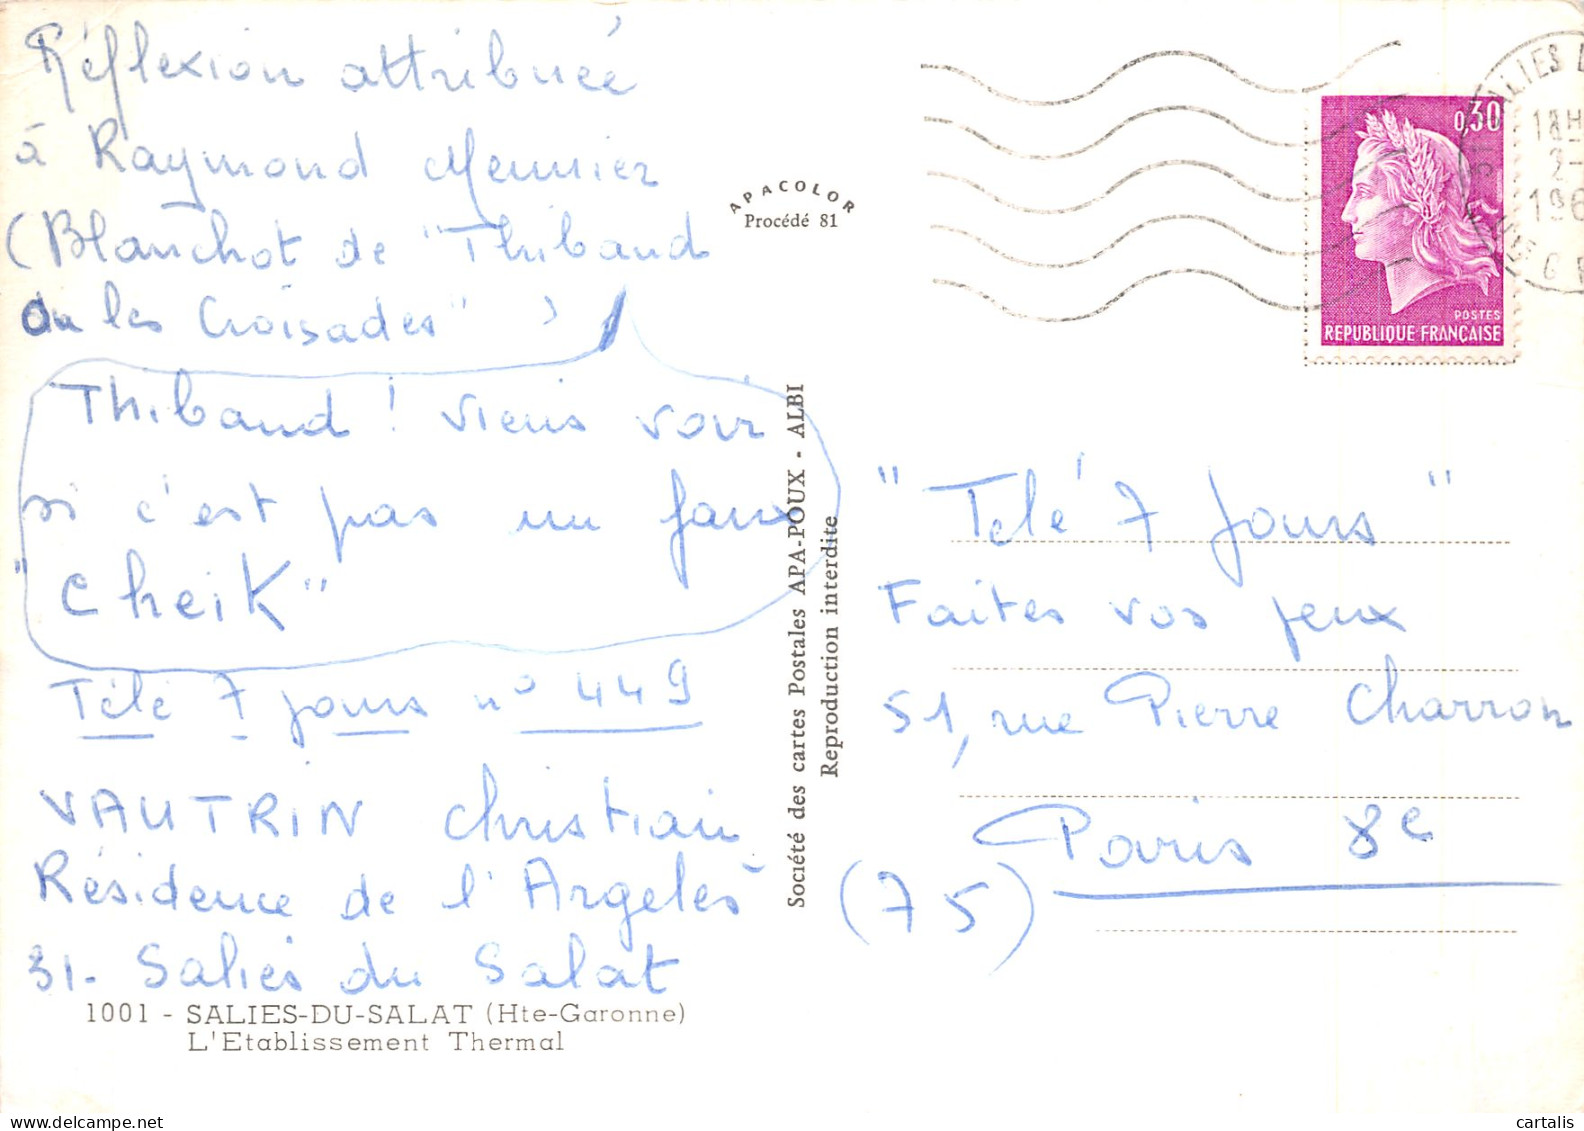 Réflexion attribuée
à Raymond Meunier
(Blanchot de "Thibaud
ou les Croisades" )
Thibaud ! Viens voir
si c'est pas un faux
"Cheik"
Télé 7 jours n° 449
VAUTRIN Christian
Résidence de l'Argelès
31- Salies du Salat
1001 - SALIES-DU-SALAT (Hte-Garonne)
L'Etablissement Thermal
APACOLOR
Procédé 81
Société des cartes Postales APA-POUX - ALBI
Reproduction interdite
0,30
POSTES
REPUBLIQUE FRANÇAISE
31 SALIES D
18H
2-
196
"Télé 7 Jours"
Faites vos jeux
51, rue Pierre Charron
Paris 8e
(75)
cartalis